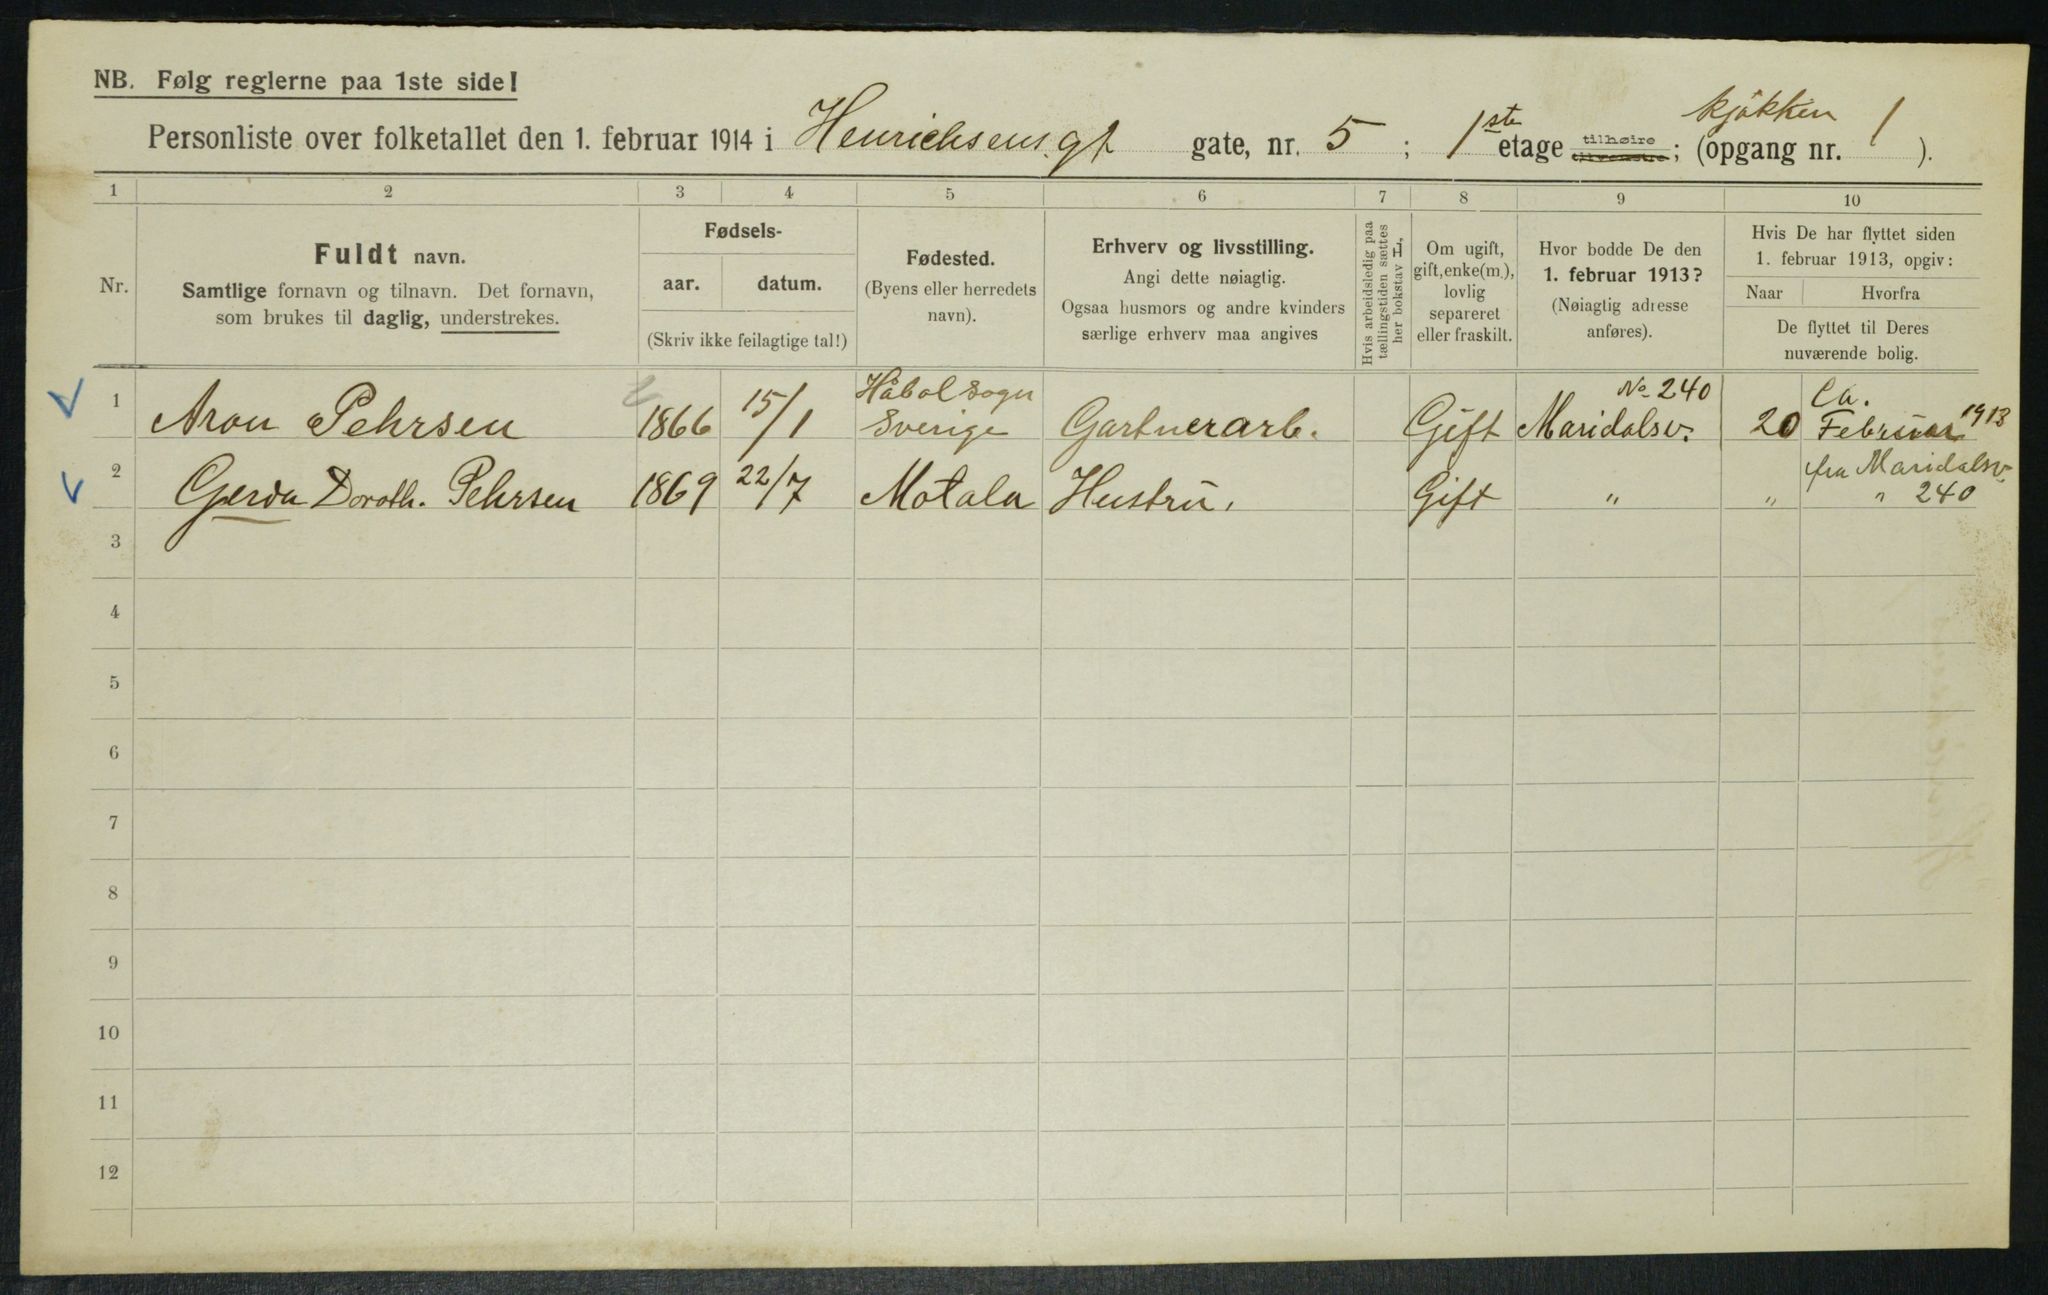 NB. Følg reglerne paa 1ste side!
kjøkken
Personliste over folketallet den 1. februar 1914 i Henrichsens.gt gate, nr. 5 ; 1ste etage tilhøire ; (opgang nr. 1 ).
1 2 3 4 5 6 7 8 9 10
Nr.
Fuldt navn.
Samtlige fornavn og tilnavn. Det fornavn,
som brukes til daglig, understrekes.
Fødsels-
aar. datum.
(Skriv ikke feilagtige tal!)
Fødested.
(Byens eller herredets
navn).
Erhverv og livsstilling.
Angi dette nøiagtig.
Ogsaa husmors og andre kvinders
særlige erhverv maa angives
Hvis arbeidsledig paa
tællingstiden sættes
her bokstav L.
Om ugift,
gift, enke(m.),
lovlig
separeret
eller fraskilt.
Hvor bodde De den
1. februar 1913?
(Nøiagtig adresse
anføres).
Hvis De har flyttet siden
1. februar 1913, opgiv:
Naar Hvorfra
De flyttet til Deres
nuværende bolig.
Håbol Sogn No 240 Ca.
1 Aron Pehrsen 1866 15/1 Sverige Gartnerarb. Gift Maridalsv. 20 Februar 1913
fra Maridalsv.
2 Gerda Doroth. Pehrsen 1869 22/7 Motala Hustru. Gift " " " 240
3
4
5
6
7
8
9
10
11
12